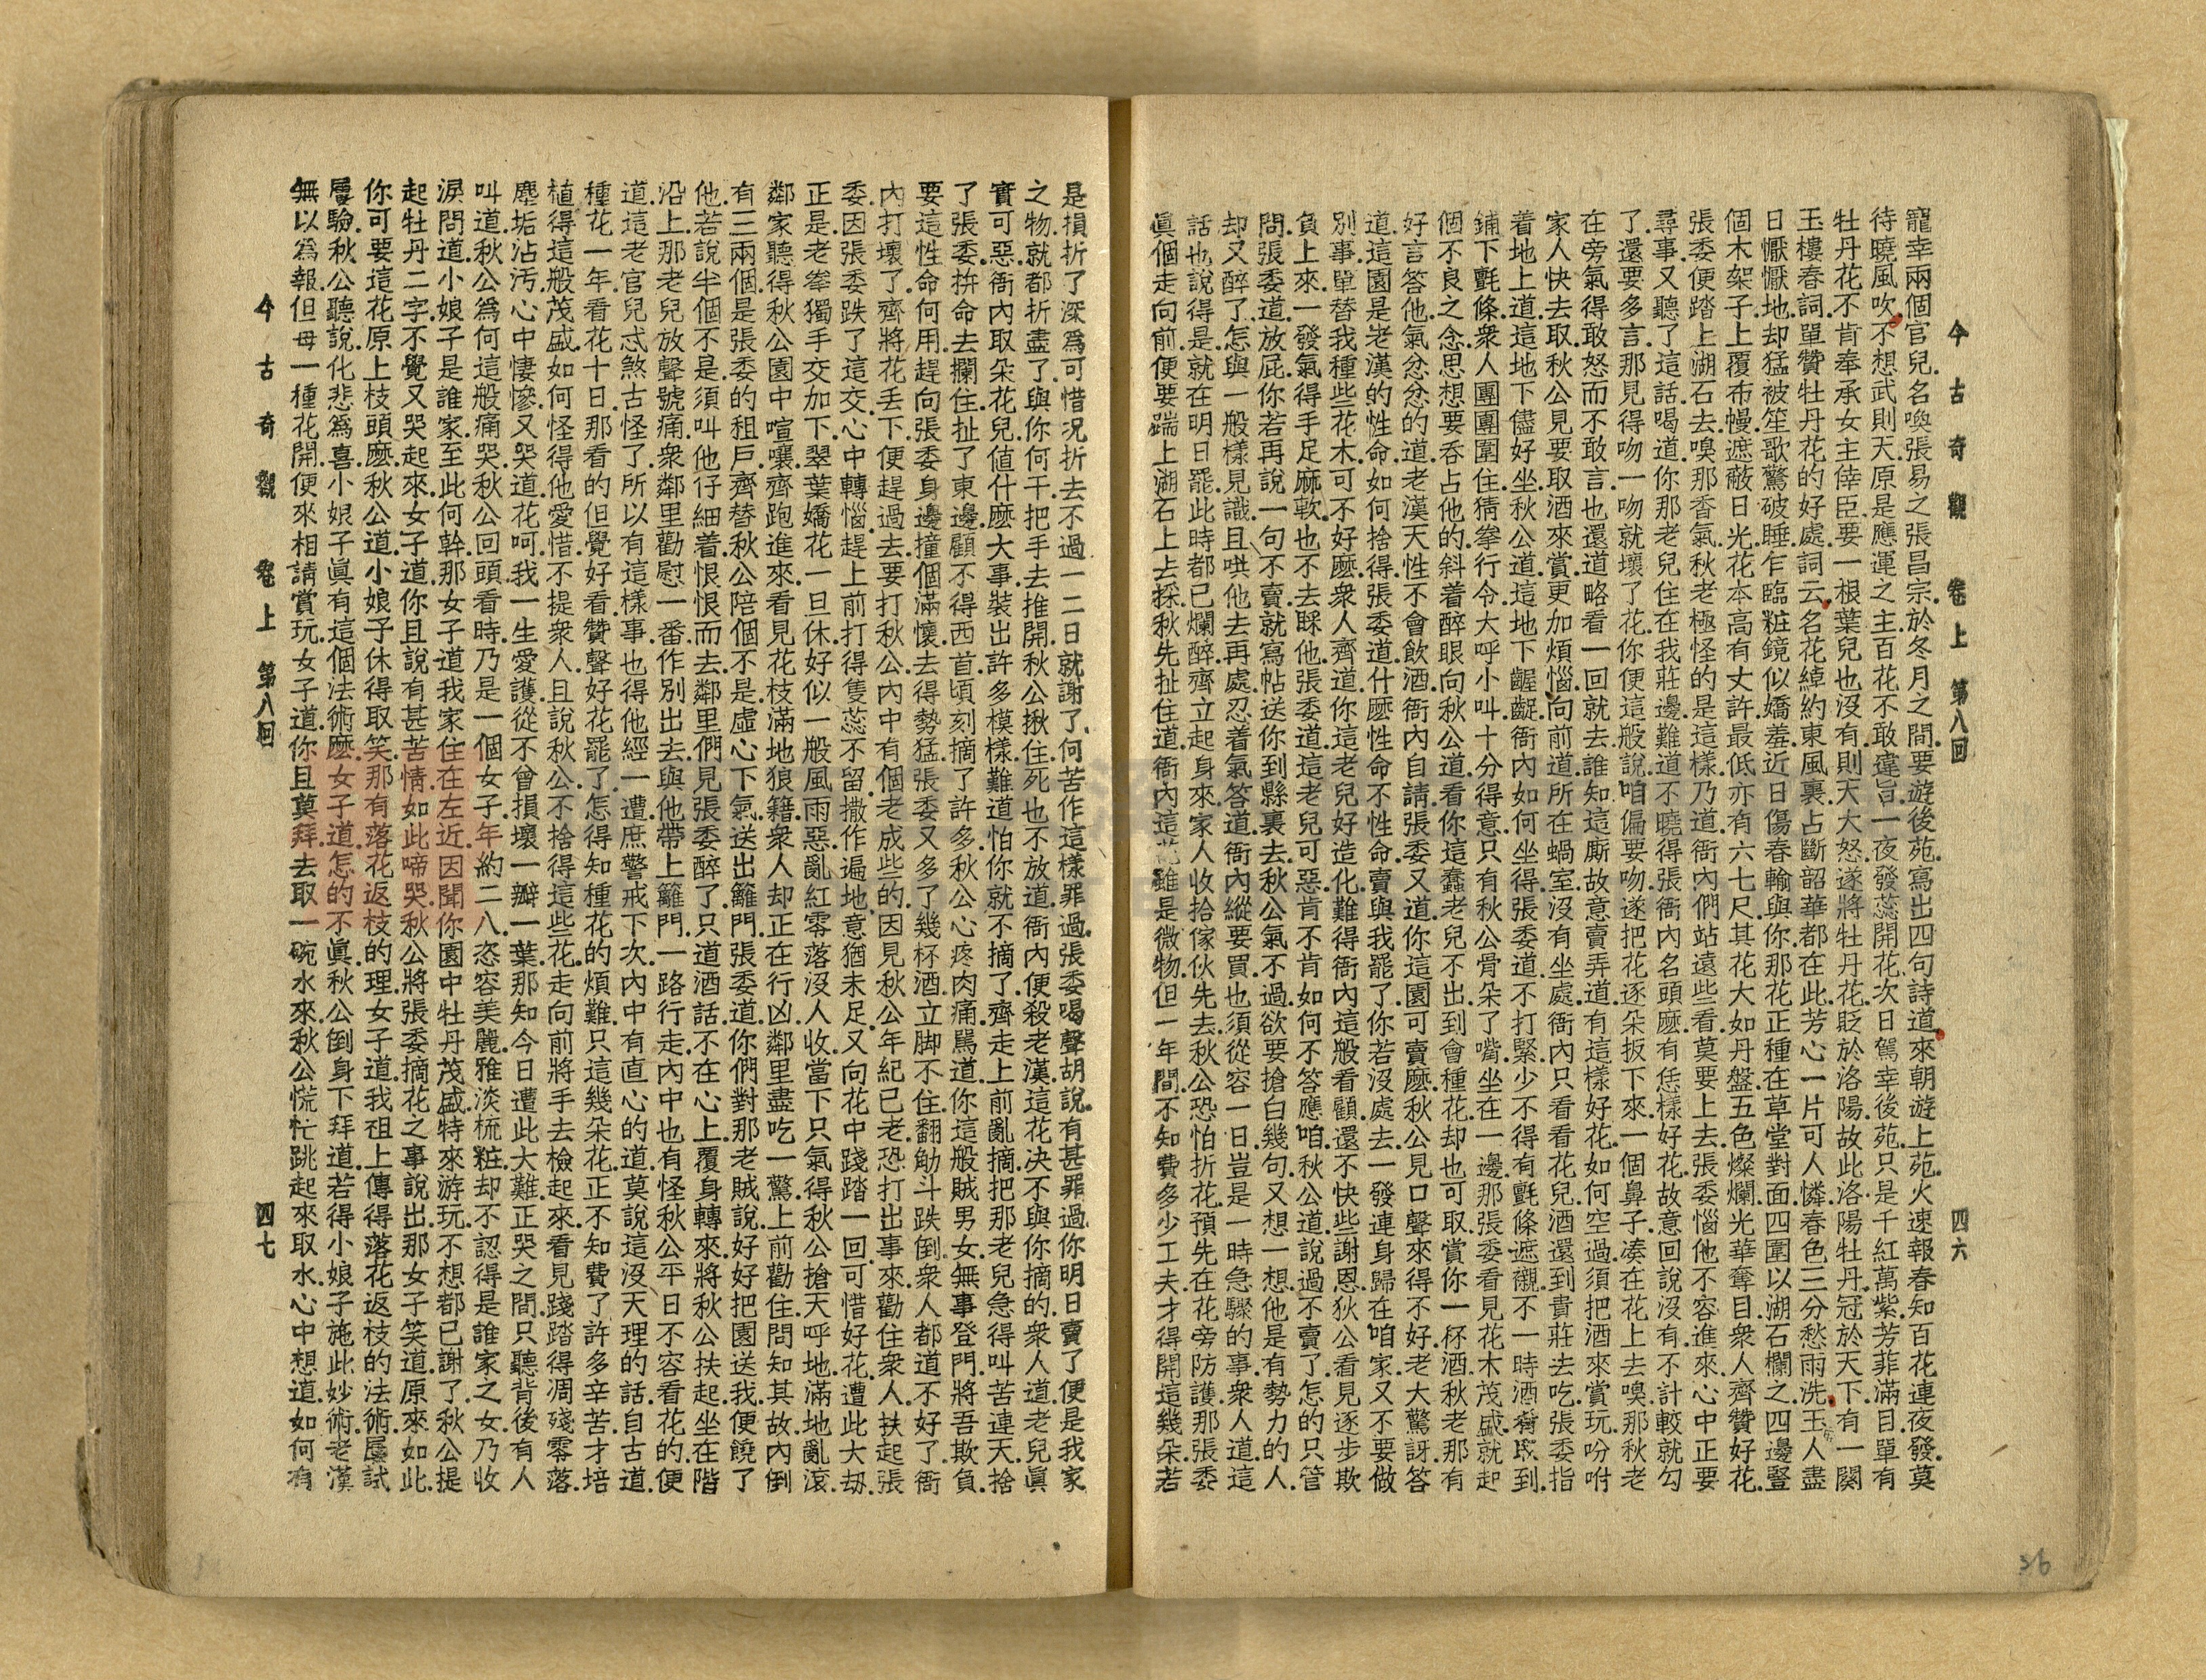 今古奇觀 卷上 第八回 四六
寵幸兩個官兒名喚張易之張昌宗.於冬月之間.要遊後苑.寫出四句詩道.來朝遊上苑.火速報春知.百花連夜發.莫
待曉風吹.不想武則天.原是應運之主.百花不敢違旨.一夜發蕊開花.次日駕幸後苑.只是千紅萬紫.芳菲滿目.單有
牡丹花不肯奉承女主倖臣.要一根葉兒也沒有.則天大怒.遂將牡丹花.貶於洛陽.故此洛陽牡丹.冠於天下.有一闋
玉樓春詞.單贊牡丹花的好處.詞云.名花綽約東風裏.占斷韶華都在此.芳心一片可人憐.春色三分愁雨洗.玉人盡
日懨懨地.却猛被笙歌驚破睡.乍臨粧鏡似嬌羞.近日傷春輸與你.那花正種在草堂對面.四圍以湖石欄之.四邊豎
個木架子.上覆布幔.遮蔽日光.花本高有丈許.最低亦有六七尺.其花大如丹盤.五色燦爛.光華奪目.衆人齊贊好花.
張委便踏上湖石去嗅那香氣.秋老極怪的是這樣.乃道.衙內們站遠些看.莫要上去.張委惱他不容進來.心中正要
尋事.又聽了這話.喝道.你那老兒.住在我莊邊.難道不曉得張衙內名頭麽.有恁樣好花.故意回說沒有.不計較就勾
了.還要多言.那見得吻一吻就壞了花.你便這般說.咱偏要吻.遂把花逐朵扳下來.一個鼻子凑在花上去嗅.那秋老
在旁.氣得敢怒而不敢言.也還道略看一回就去.誰知這厮故意賣弄道.有這樣好花.如何空過.須把酒來賞玩.吩咐
家人快去取.秋公見要取酒來賞.更加煩惱.向前道.所在蝸室.沒有坐處.衙內只看看花兒.酒還到貴莊去吃.張委指
着地上道.這地下儘好坐.秋公道.這地下齷齪.衙內如何坐得.張委道.不打緊.少不得有氈條遮襯.不一時.酒肴取到.
鋪下氈條.衆人團團圍住.猜拳行令.大呼小叫.十分得意.只有秋公骨朵了嘴.坐在一邊.那張委看見花木茂盛.就起
個不良之念.思想要吞占他的.斜着醉眼.向秋公道.看你這蠢老兒不出.到會種花.却也可取.賞你一杯酒.秋老那有
好言答他.氣忿忿的道.老漢天性不會飲酒.衙內自請.張委又道.你這園可賣麽.秋公見口聲來得不好.老大驚訝.答
道.這園是老漢的性命.如何捨得.張委道.什麽性命不性命.賣與我罷了.你若沒處去.一發連身歸在咱家.又不要做
別事.單替我種些花木.可不好麽.衆人齊道.你這老兒好造化.難得衙內這般看顧.還不快些謝恩.狄公看見逐步欺
負上來.一發氣得手足麻軟.也不去睬他.張委道.這老兒可惡.肯不肯.如何不答應咱.秋公道.說過不賣了.怎的只管
問.張委道.放屁.你若再說一句不賣.就寫帖送你到縣裏去.秋公氣不過.欲要搶白幾句.又想一想.他是有勢力的人.
却又醉了.怎與一般樣見識.且哄他去再處.忍着氣答道.衙內縱要買.也須從容一日.豈是一時急驟的事.衆人道.這
話也說得是.就在明日罷.此時都已爛醉.齊立起身來.家人收拾傢伙先去.秋公恐怕折花.預先在花旁防護.那張委
眞個走向前.便要踹上湖石上去採.秋先扯住道.衙內.這花雖是微物.但一年間.不知費多少工夫.才得開這幾朵.若
是損折了.深爲可惜.況折去不過一二日就謝了.何苦作這樣罪過.張委喝聲胡說.有甚罪過.你明日賣了.便是我家
之物.就都折盡了.與你何干.把手去推開.秋公揪住死也不放.道.衙內便殺老漢.這花决不與你摘的.衆人道.老兒眞
實可惡.衙內取朵花兒.值什麽大事.裝出許多模樣.難道怕你就不摘了.齊走上前亂摘.把那老兒急得叫苦連天.捨
了張委.拚命去攔住.扯了東邊.顧不得西首.頃刻摘了許多.秋公心疼肉痛.駡道.你這般賊男女.無事登門.將吾欺負.
要這性命何用.趕向張委身邊.撞個滿懷.去得勢猛.張委又多了幾杯酒.立脚不住.翻觔斗跌倒.衆人都道.不好了.衙
內打壞了.齊將花丢下.便趕過去.要打秋公.內中有個老成些的.因見秋公年紀已老.恐打出事來.勸住衆人.扶起張
委.因張委跌了這交.心中轉惱.趕上前打得隻蕊不留.撒作遍地.意猶未足.又向花中踐踏一回.可惜好花.遭此大劫.
正是老拳獨手交加下.翠葉嬌花一旦休.好似一般風雨惡.亂紅零落沒人收.當下只氣得秋公搶天呼地.滿地亂滾.
鄰家聽得秋公園中喧嚷.齊跑進來.看見花枝滿地狼籍.衆人却正在行凶.鄰里盡吃一驚.上前勸住.問知其故.內倒
有三兩個.是張委的租戶.齊替秋公陪個不是.虛心下氣.送出籬門.張委道.你們對那老賊說.好好把園送我.便饒了
他.若說半個不是.須叫他仔細着.恨恨而去.鄰里們見張委醉了.只道酒話.不在心上.覆身轉來.將秋公扶起.坐在階
沿上.那老兒放聲號痛.衆鄰里勸慰一番.作別出去.與他帶上籬門.一路行走.內中也有怪秋公平日不容看花的.便
道.這老官兒忒煞古怪了.所以有這樣事.也得他經一遭.庶警戒下次.內中有直心的道.莫說這沒天理的話.自古道.
種花一年.看花十日.那看的但覺好看.贊聲好花罷了.怎得知種花的煩難.只這幾朵花.正不知費了許多辛苦.才培
植得這般茂盛.如何怪得他愛惜.不提衆人.且說秋公不捨得這些花.走向前將手去檢起來.看見踐踏得凋殘零落.
塵垢沾汚.心中悽慘.又哭道.花呵.我一生愛護.從不曾損壞一瓣一葉.那知今日遭此大難.正哭之間.只聽背後有人
叫道.秋公爲何這般痛哭.秋公回頭看時.乃是一個女子.年約二八.恣容美麗.雅淡梳粧.却不認得是誰家之女.乃收
淚問道.小娘子是誰家.至此何幹.那女子道.我家住在左近.因聞你園中牡丹茂盛.特來游玩.不想都已謝了.秋公提
起牡丹二字.不覺又哭起來.女子道.你且說有甚苦情.如此啼哭.秋公將張委摘花之事說出.那女子笑道.原來如此.
你可要這花.原上枝頭麽.秋公道.小娘子休得取笑.那有落花返枝的理.女子道.我祖上傳得落花返枝的法術.屢試
屢驗.秋公聽說.化悲爲喜.小娘子眞有這個法術麽.女子道.怎的不眞.秋公倒身下拜道.若得小娘子施此妙術.老漢
無以爲報.但每一種花開.便來相請賞玩.女子道.你且莫拜.去取一碗水來.秋公慌忙跳起來取水.心中想道.如何有
今古奇觀 卷上 第八回 四七
36